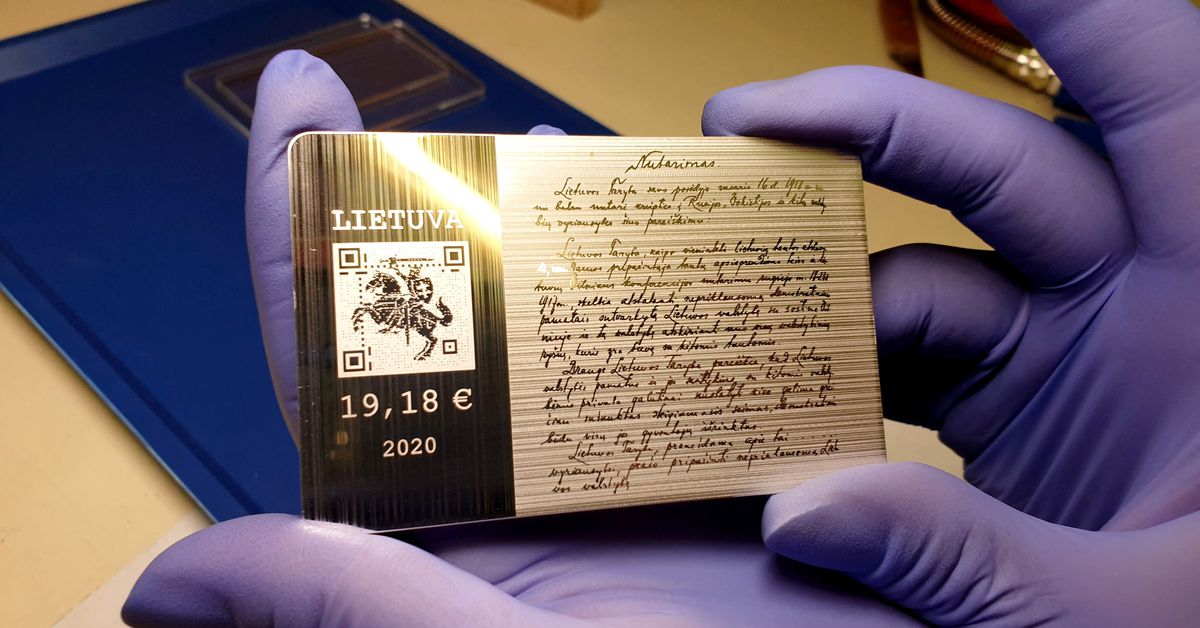 LIETUVA
19,18 €
2020
Nutarimas.
Lietuvos Taryba savo posėdyje vasario 16 d. 1918 m.
balsu nutarė kreiptis: Rusijos, Vokietijos ir kitų vals
bių vyriausybes šiuo pareiškimu
Lietuvos Taryba, kaip vienintelė lietuvių tautos
pripažintąja tautų apsisprendimo teise
Vilniaus konferencijos nutarimu rugsėjo m.
1917 m. skelbia atstatanti nepriklausomą demokratiniais
pamatais sutvarkytą Lietuvos valstybę su sostine
niuje ir tą valstybę atskirianti nuo visų valstybinių
ryšių, kurie yra buvę su kitomis tautomis.
Drauge Lietuvos Taryba pareiškia kad Lietuvos
valstybės pamatus ir jos santykius su kitomis valst
bėmis privalo galutinai nustatyti kiek galima grei
čiau sušauktas steigiamasis seimas, demokratiniu
būdu visų jo gyventojų išrinktas.
Lietuvos Taryba, pranešdama apie tai
vyriausybei, prašo pripažinti nepriklausomą Liet
vos valstybę